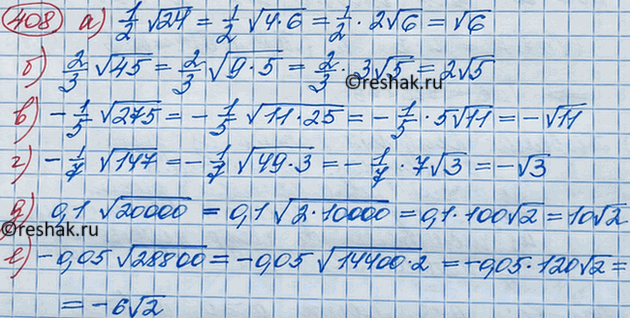 408 а) 1/2 √24 = 1/2 √4·6 = 1/2 · 2√6 = √6
б) 2/3 √45 = 2/3 √9·5 = 2/3 · 3√5 = 2√5
©reshak.ru
в) -1/5 √275 = -1/5 √11·25 = -1/5 · 5√11 = -√11
г) -1/7 √147 = -1/7 √49·3 = -1/7 · 7√3 = -√3
д) 0,1 √20000 = 0,1 √2·10000 = 0,1·100√2 = 10√2
©reshak.ru
е) -0,05 √28800 = -0,05 √14400·2 = -0,05·120√2 =
= -6√2